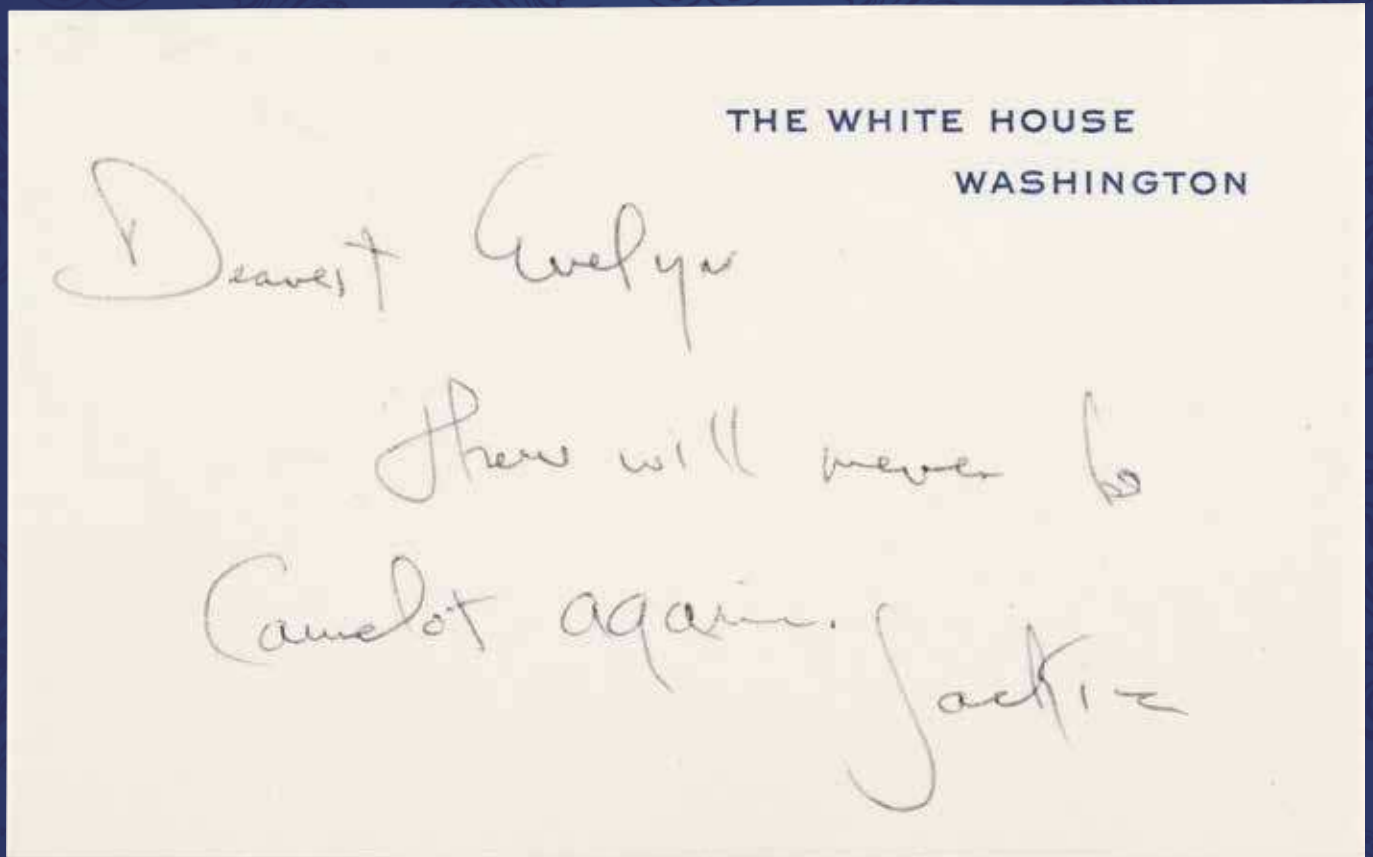 THE WHITE HOUSE
WASHINGTON
Dearest Evelyn
there will never be
Camelot again.
Jackie